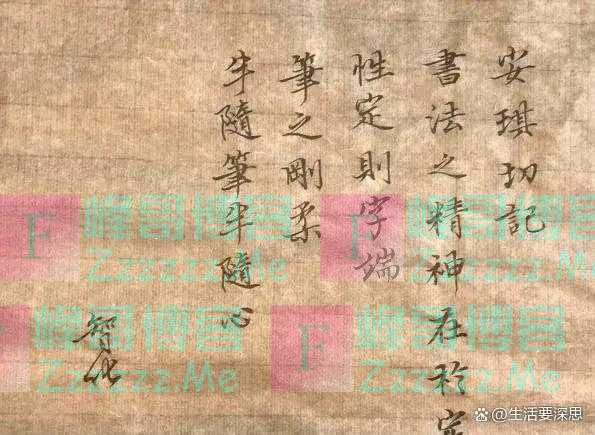 安琪切記
書法之精神在於
性定則字端
筆之剛柔
半隨筆半隨心
智化
F
峰哥博客
Zzzzzz.Me
F
峰哥博客
Zzzzzz.Me
峰哥博客
Zzzzzz.Me
F
峰哥博客
Zzzzzz.Me
@生活要深思